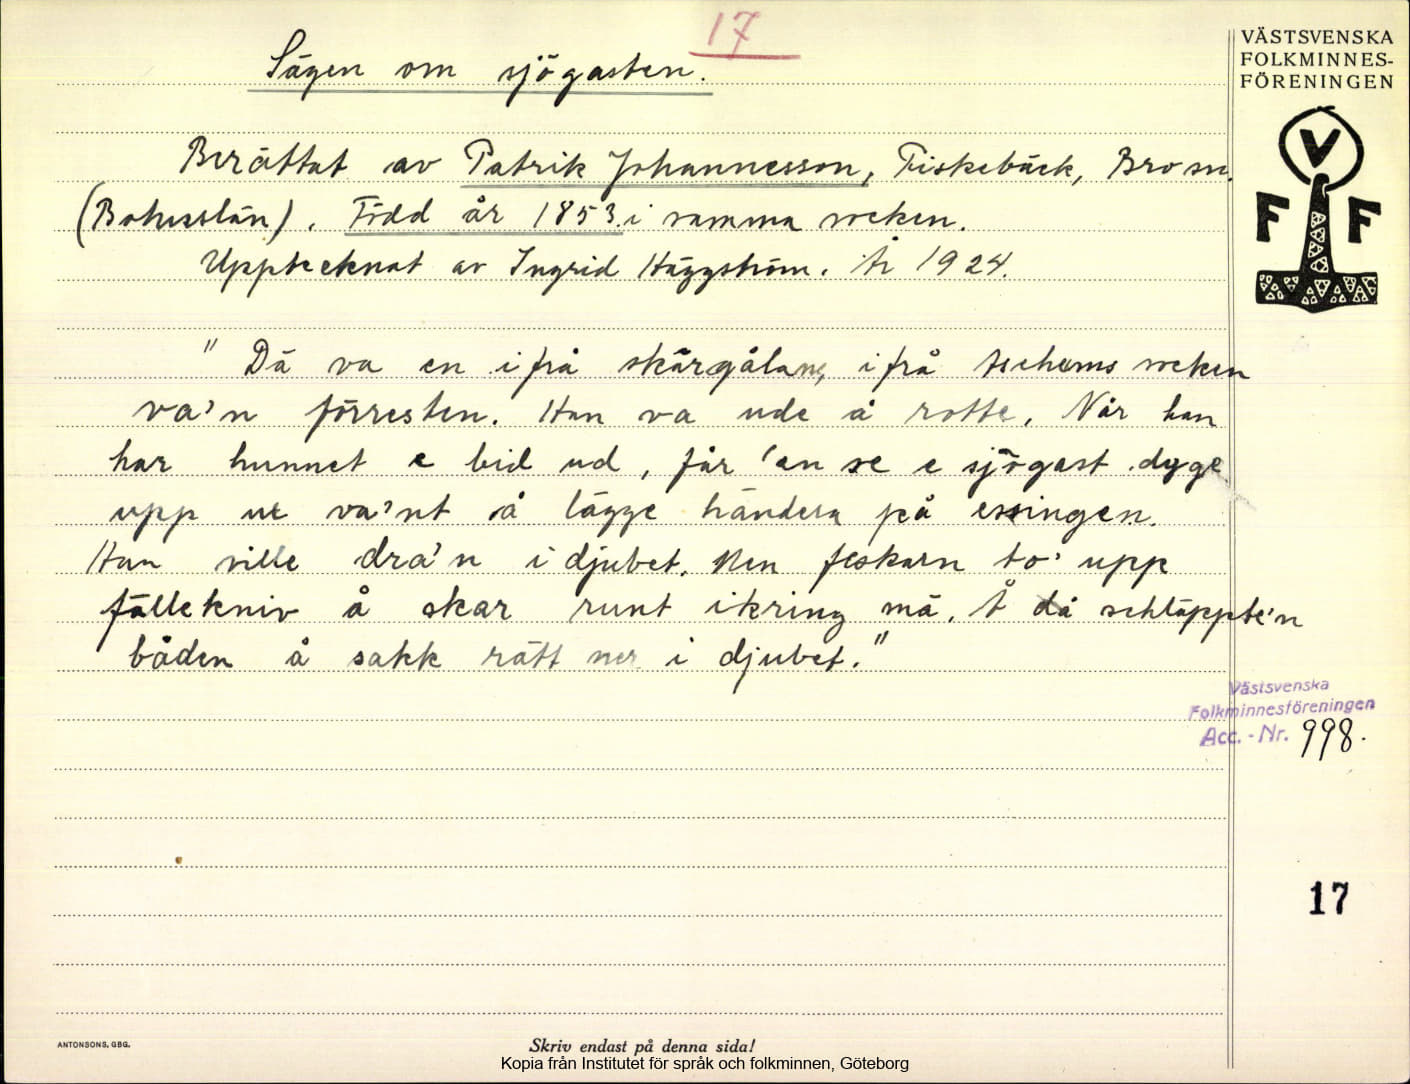 17
Sägen om sjögasten.
VÄSTSVENSKA
FOLKMINNES-
FÖRENINGEN
V
F F
Berättat av Patrik Johannesson, Fiskebäck, Brom.
(Bohuslän). Född år 1853. i samma socken.
Upptecknat av Ingrid Häggström. År 1924.
" Dä va en ifrå skärgålan, ifrå Aschems socken
va'n förresten. Han va ude å rotte. Når han
har hunnet e bid ud, får 'an se e sjögast dyge
upp ur va'nt å lägge händera på essingen.
Han ville dra'n i djubet. Men feskarn to' upp
fällekniv å skar runt ikring mä. Å då schläppte'n
båden å sakk rätt ner i djubet."
Västsvenska
Folkminnesföreningen
Acc.-Nr. 998.
17
ANTONSONS, GBG.
Skriv endast på denna sida!
Kopia från Institutet för språk och folkminnen, Göteborg